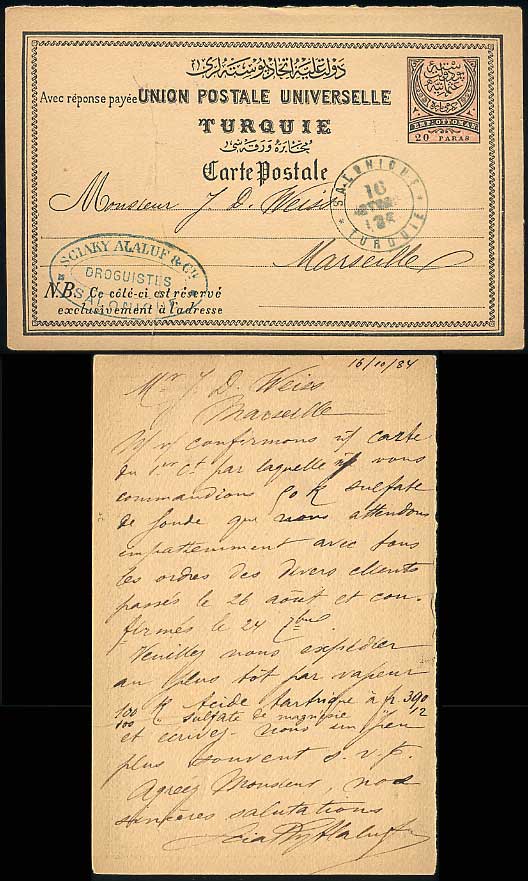 دولت عليه اتحاد پوسته لرى
Avec réponse payée
UNION POSTALE UNIVERSELLE
TURQUIE
مخابره ورقه سى
Carte Postale
EMP: OTTOMAN
20 PARAS
SALONIQUE
16
TURQUIE
Monsieur J. D. Weiss
Marseille
SCIAKY ALALUF & Cie
DROGUISTES
SALONIQUE
N.B. Ce côté-ci est réservé
exclusivement à l'adresse
16/10/84
Mr J. D. Weiss
Marseille
confirmons n/ carte
du 1er Ct par laquelle n/ vous
commandions 50 K sulfate
de soude que nous attendons
impatiemment avec tous
les ordres des divers clients
passés le 26 août et con-
firmés le 24 7bre
Veuillez nous expédier
au plus tôt par vapeur
100 K Acide tartrique à fr. 390
100 " sulfate de magnésie " 12
et écrivez-nous un peu
plus souvent s.v.p.
Agréez Monsieur, nos
sincères salutations
Sciaky Alaluf